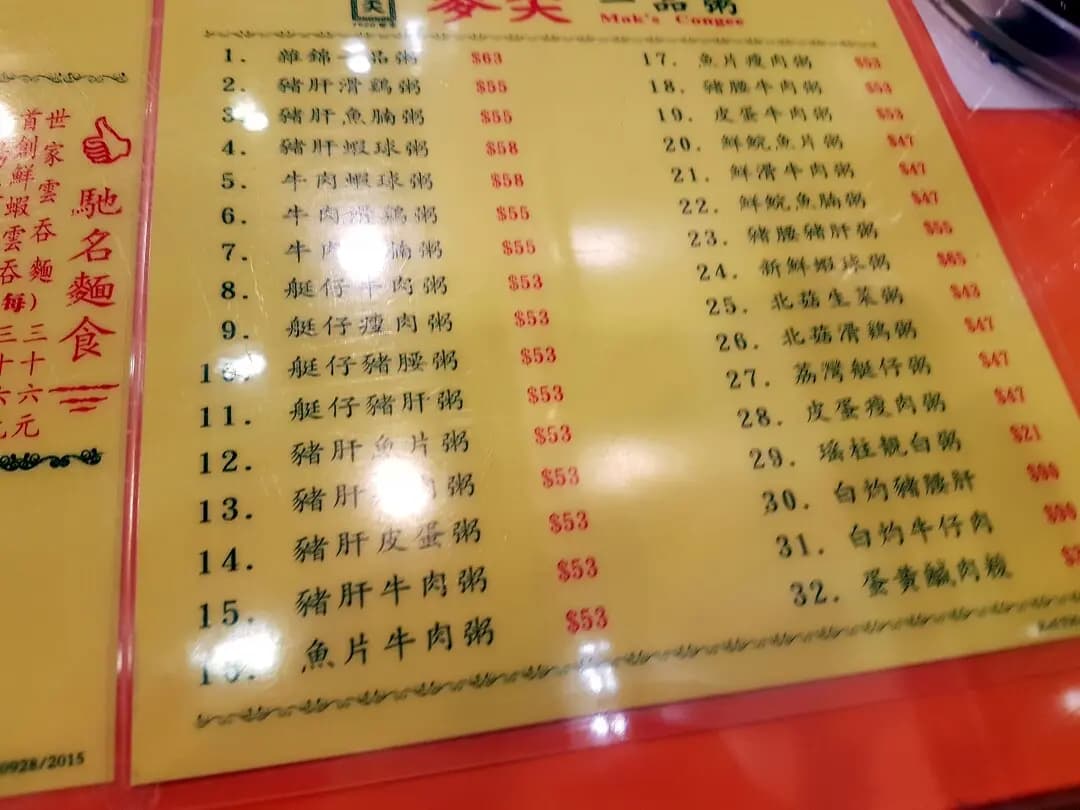 麥奀 一品粥
Mak's Congee
1. 雜錦一品粥 $63
2. 豬肝滑鷄粥 $55
3. 豬肝魚腩粥 $55
4. 豬肝蝦球粥 $58
5. 牛肉蝦球粥 $58
6. 牛肉滑鷄粥 $55
7. 牛肉 腩粥 $55
8. 艇仔牛肉粥 $53
9. 艇仔瘦肉粥 $53
10. 艇仔豬腰粥 $53
11. 艇仔豬肝粥 $53
12. 豬肝魚片粥 $53
13. 豬肝 肉粥 $53
14. 豬肝皮蛋粥 $53
15. 豬肝牛肉粥 $53
16. 魚片牛肉粥 $53
17. 魚片瘦肉粥 $53
18. 豬腰牛肉粥 $53
19. 皮蛋牛肉粥 $53
20. 鮮鯇魚片粥 $47
21. 鮮滑牛肉粥 $47
22. 鮮鯇魚腩粥 $47
23. 豬腰豬肝粥 $55
24. 新鮮蝦球粥 $65
25. 北菇生菜粥 $43
26. 北菇滑鷄粥 $47
27. 荔灣艇仔粥 $47
28. 皮蛋瘦肉粥 $47
29. 瑤柱靚白粥 $21
30. 白灼豬腰肝
31. 白灼牛仔肉
32. 蛋黃鹹肉糉
馳名麵食
世家雲吞麵
首創鮮蝦雲吞
(每)
三十六元
0928/2015